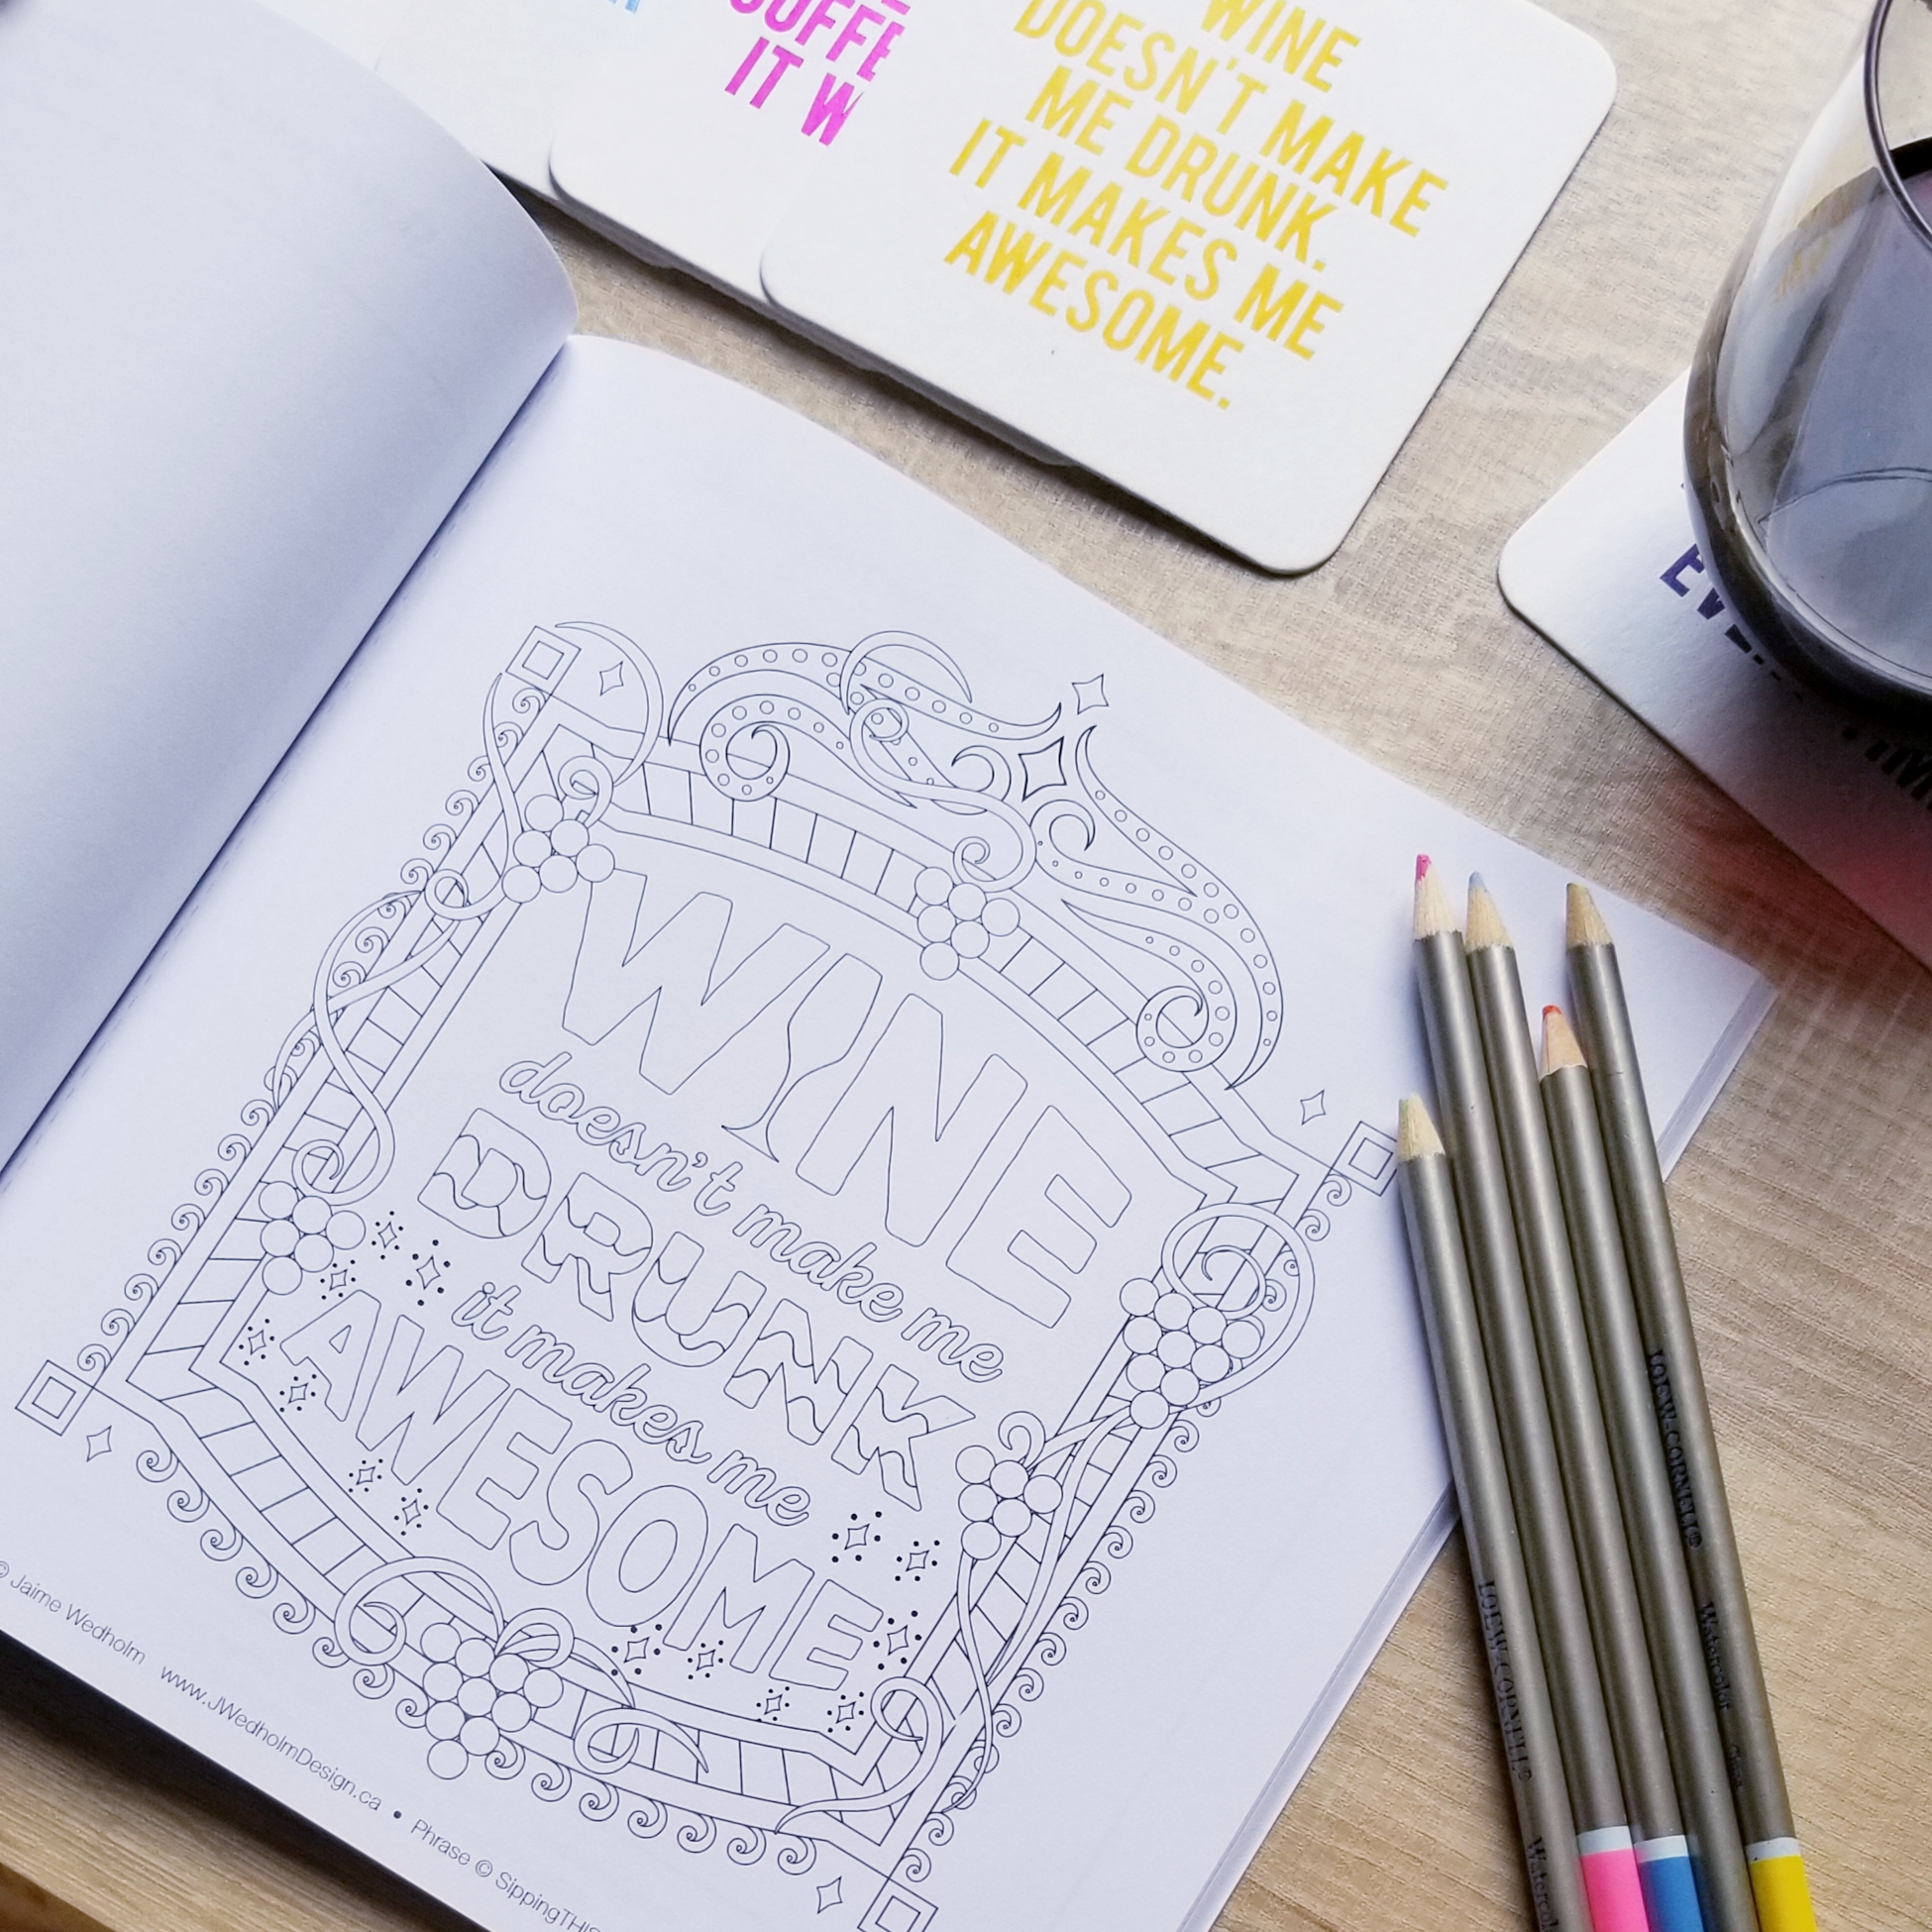 IT W
WINE
DOESN'T MAKE
ME DRUNK.
IT MAKES ME
AWESOME.
WINE
doesn't make me
DRUNK
it makes me
AWESOME
© Jaime Wedholm www.JWedholmDesign.ca • Phrase © SippingTHis
LOEW-CORNELL®
Watercolor
LOEW-CORNELL®